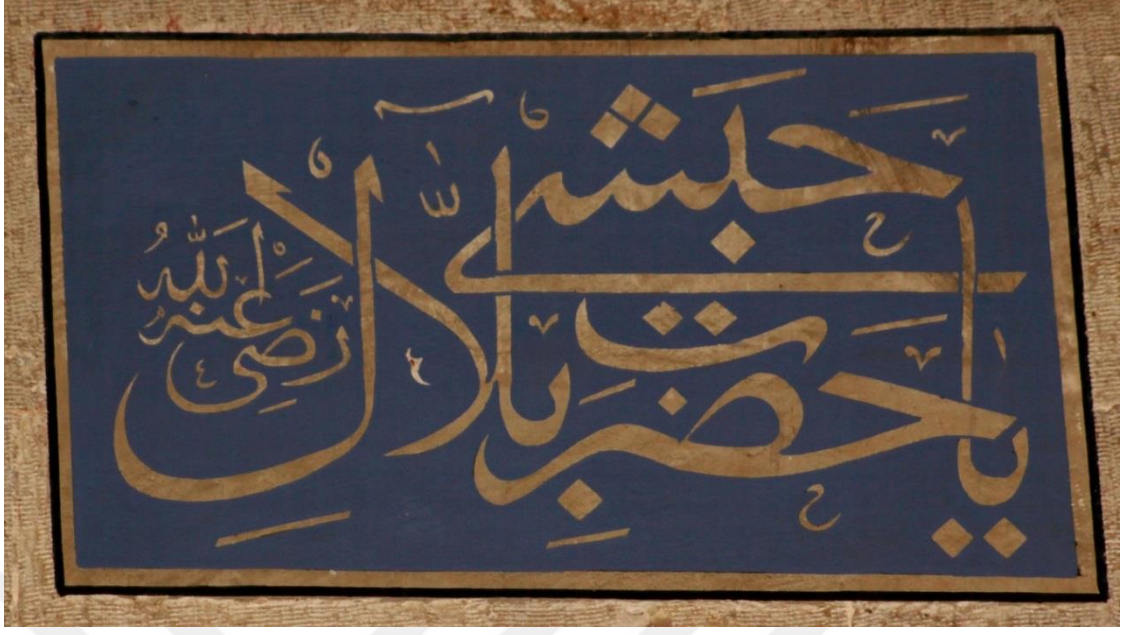 يا حضرت بلال حبشى رضى الله عنه